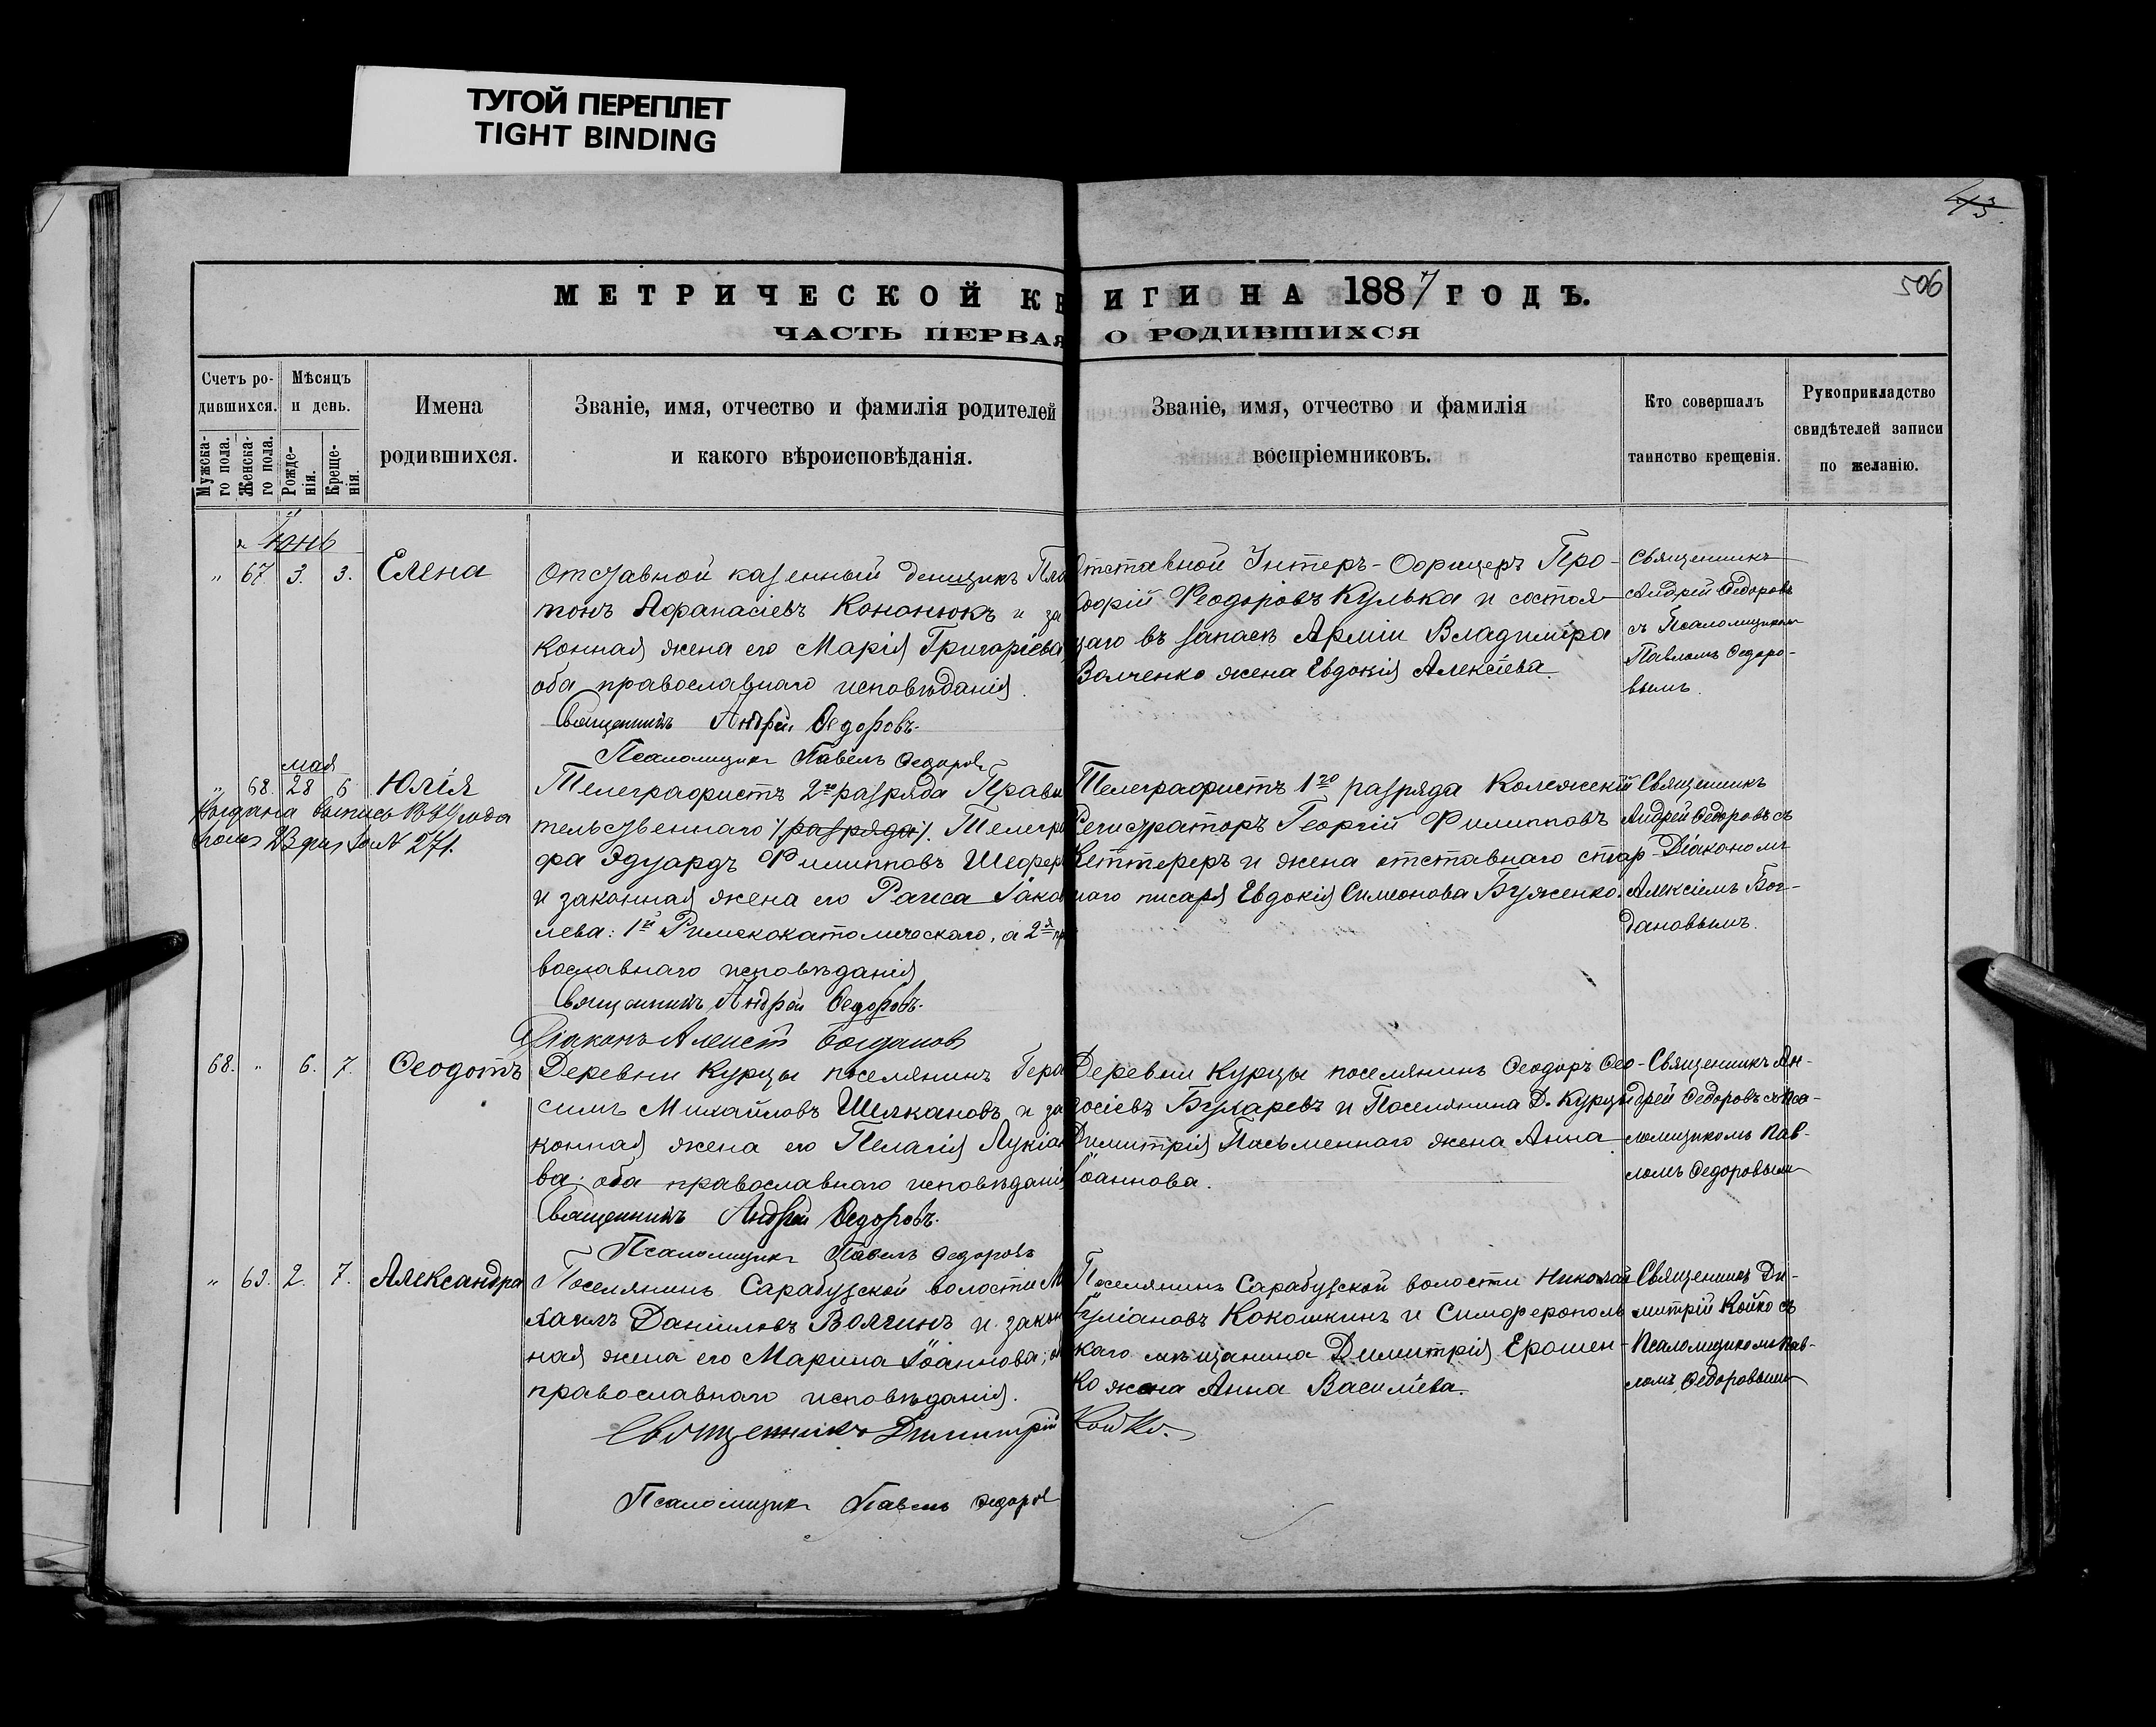 ТУГОЙ ПЕРЕПЛЕТ
TIGHT BINDING
506
МЕТРИЧЕСКОЙ КНИГИ НА 1887 ГОДЪ.
ЧАСТЬ ПЕРВАЯ О РОДИВШИХСЯ
Счетъ родившихся.
Мужскаго пола.
Женскаго пола.
Мѣсяцъ и день.
Рожденія.
Крещенія.
Имена
родившихся.
Званіе, имя, отчество и фамилія родителей
и какого вѣроисповѣданія.
Званіе, имя, отчество и фамилія
воспріемниковъ.
Кто совершалъ
таинство крещенія.
Рукоприкладство
свидѣтелей записи
по желанію.
Іюнь
" 67 3. 3. Елена
Отставной казенный денщикъ Пла
тонъ Афанасіевъ Кононюкъ и за
конная жена его Марія Григоріева,
оба православнаго исповѣданія.
Священникъ Андрей Ѳедоровъ.
Псаломщикъ Павелъ Ѳедоровъ
Отставной Унтеръ-Офицеръ Про-
Ѳеодоровъ Кулька и состоя-
щаго въ запасѣ Арміи Владиміра
Волченко жена Евдокія Алексіева.
Священникъ
Андрей Ѳедоровъ
съ Псаломщикомъ
Павломъ Ѳедоро-
вымъ.
мая
" 68. 28 6 Юлія
Выдана выпись
271.
Телеграфистъ 2го разряда Прави
тельственнаго /разряда/. Телегра
фа Эдуардъ Филипповъ Шефер
и законная жена его Раиса Іаков
лева: 1й Римскокатолическаго, а 2я пра
вославнаго исповѣданія
Священникъ Андрей Ѳедоровъ.
Діаконъ Алексій Богдановъ
Телеграфистъ 1го разряда Коллежскій
Регистраторъ Георгій Филипповъ
Кеттереръ и жена отставнаго стар
шаго писаря Евдокія Симеонова Буженко.
Священникъ
Андрей Ѳедоровъ съ
Діакономъ
Алексіемъ Бог-
дановымъ.
68. " 6. 7. Ѳеодотъ
Деревни Курцы поселянинъ Гера
симъ Михайловъ Шелкановъ и за
конная жена его Пелагія Лукіано
ва: оба православнаго исповѣданія
Священникъ Андрей Ѳедоровъ.
Псаломщикъ Павелъ Ѳедоровъ
Деревни Курцы поселянинъ Ѳеодоръ Ѳео-
досіевъ Бухаревъ и Поселянина Д. Курцы
Димитрія Письменнаго жена Анна
Іоаннова.
Священникъ Ан-
дрей Ѳедоровъ съ Пса-
ломщикомъ Пав-
ломъ Ѳедоровымъ
" 69. 2. 7. Александра
Поселянинъ Сарабузской волости Ми
хаилъ Даніиловъ Волгинъ и закон
ная жена его Марина Іоаннова;
православнаго исповѣданія.
Священникъ Димитрій Койко.
Псаломщикъ Павелъ Ѳедоровъ
Поселянинъ Сарабузской волости Николай
Іуліановъ Кокошкинъ и Симферополь
скаго мѣщанина Димитрія Ерошен-
ко жена Анна Василіева.
Священникъ Ди-
митрій Койко съ
Псаломщикомъ Пав-
ломъ Ѳедоровымъ